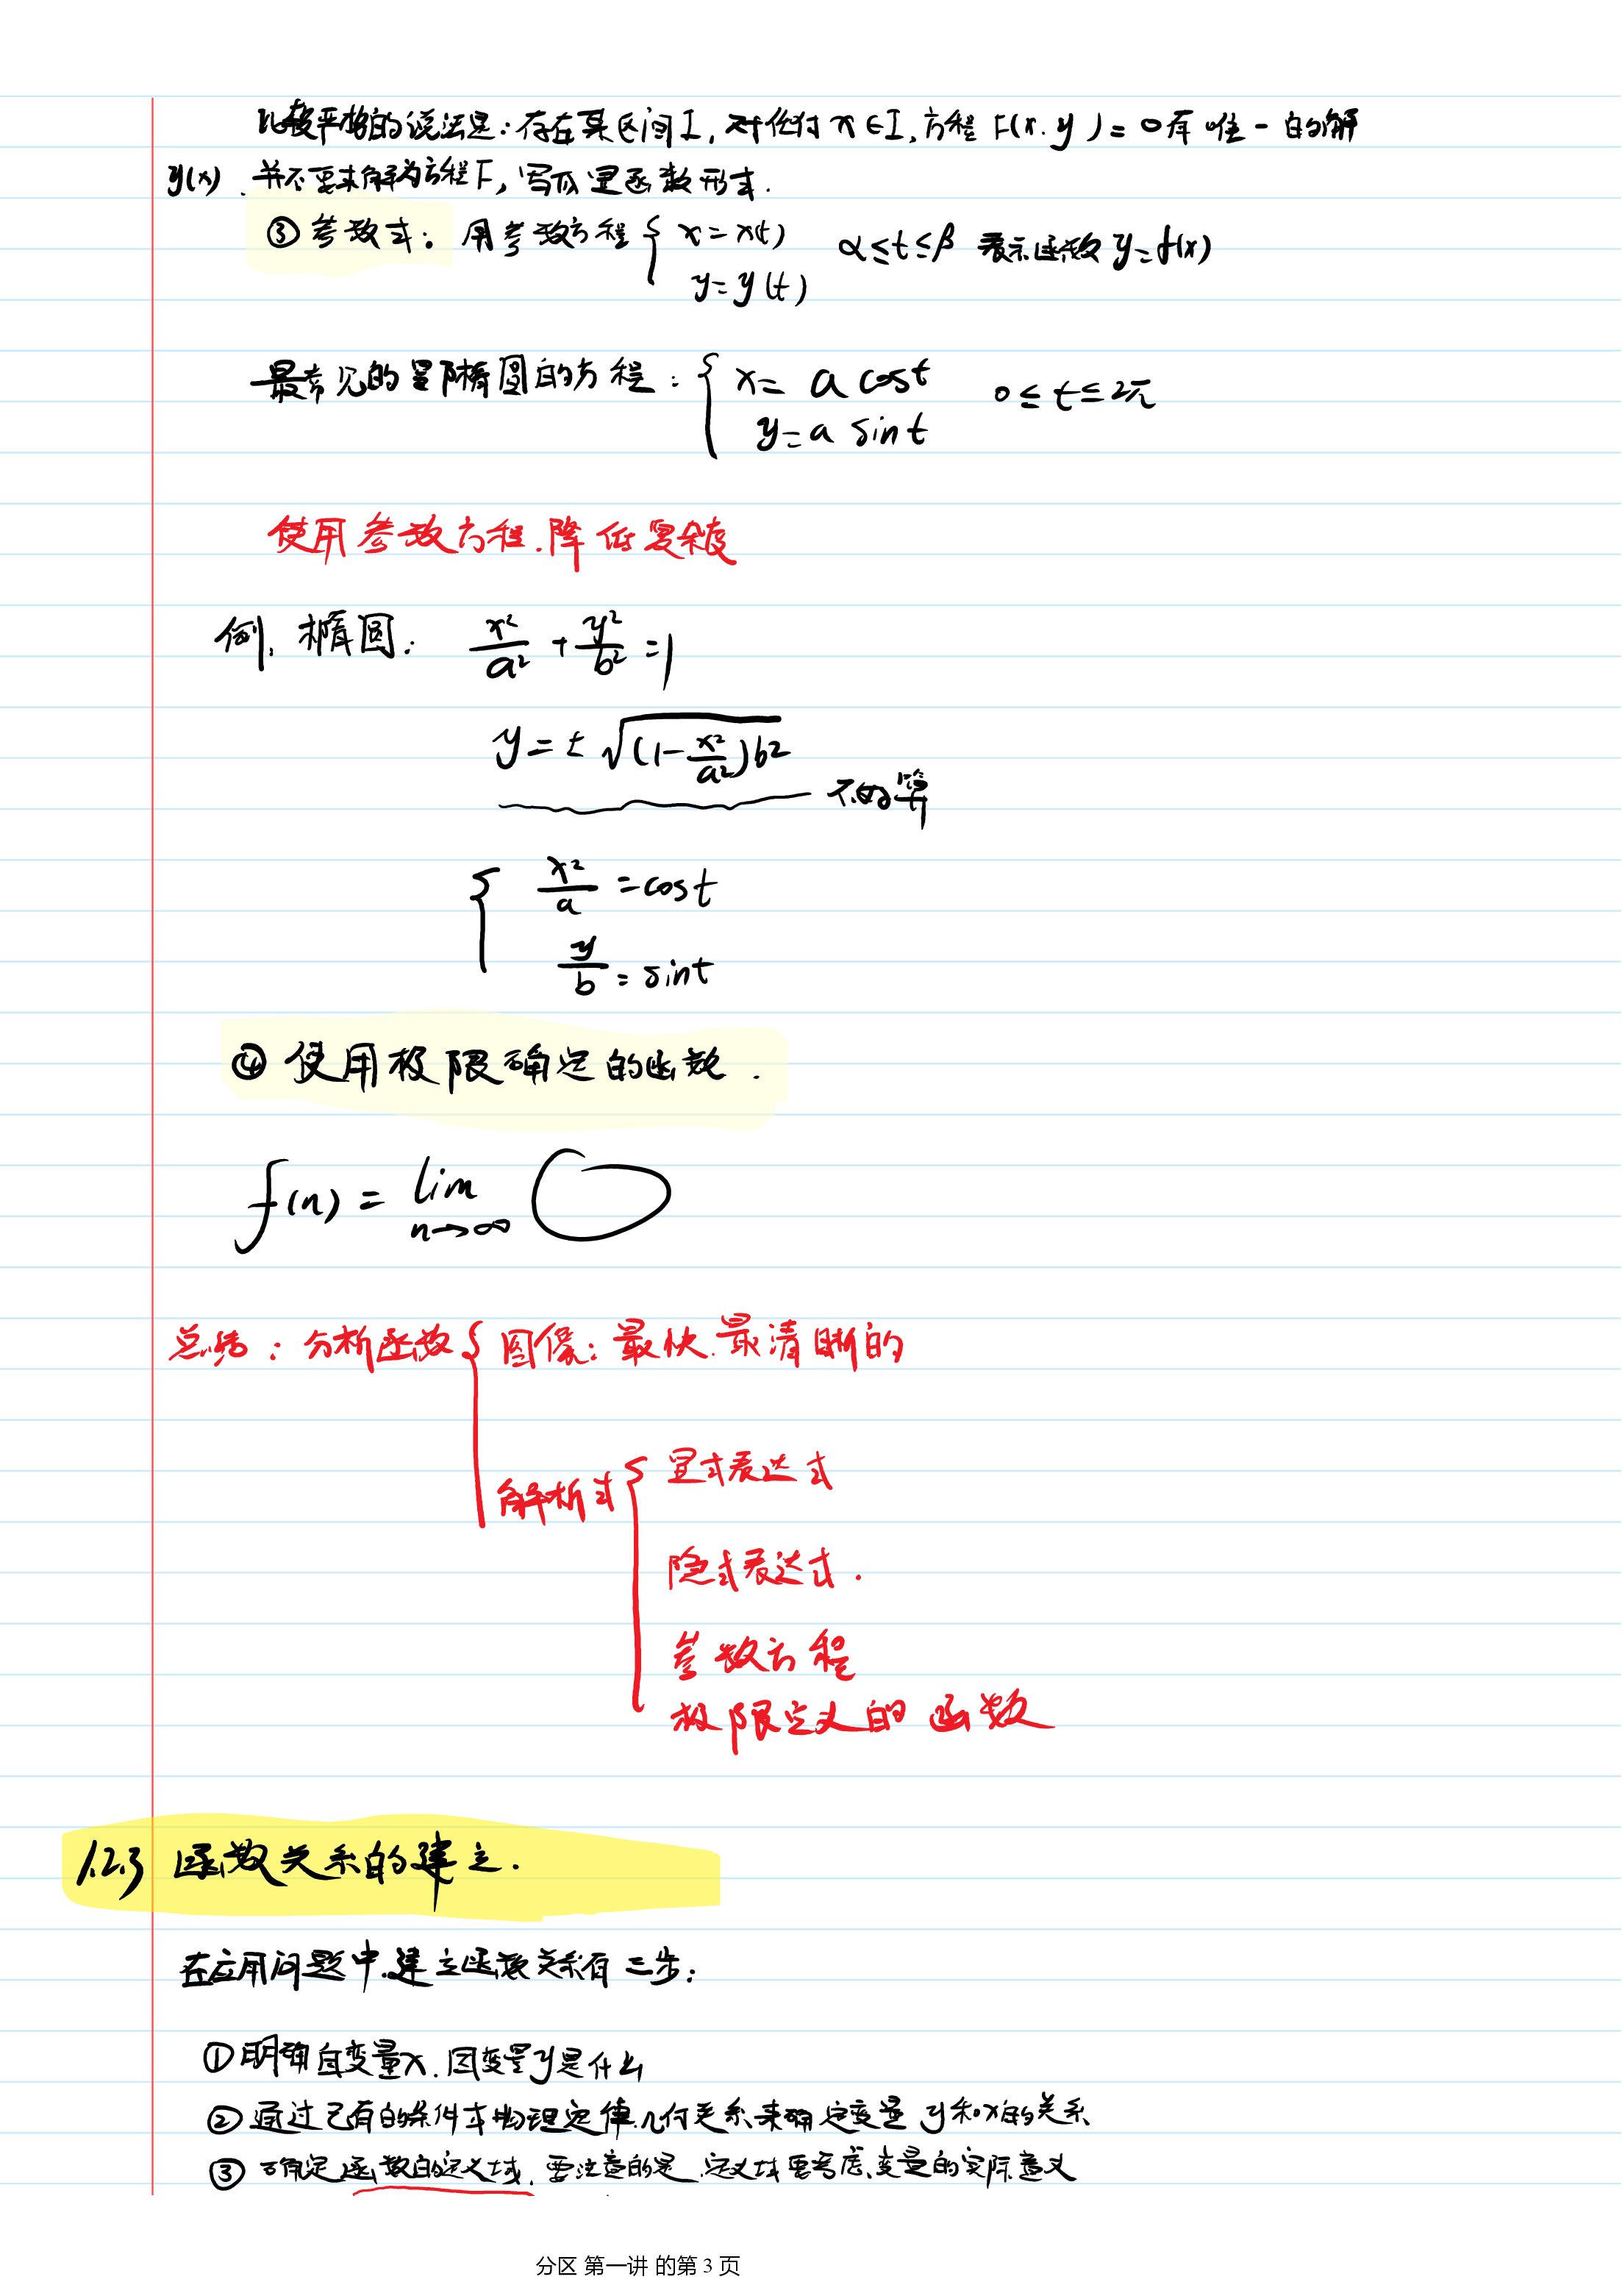 比较严格的说法是：存在某区间I，对任何 x∈I，方程 F(x.y)=0有唯一的解
y(x)．并不要求解为方程F，写成显函数形式．
③参数式：用参数方程 { x=x(t) α≤t≤β 表示函数 y=f(x)
y=y(t)
最常见的是椭圆的方程：{ x= a cost 0≤t≤2π
y=a sint
使用参数方程．降低复杂度
例．椭圆： x²/a² + y²/b² =1
y=±√((1-x²/a²)b²)
不好算
{ x²/a =cost
y/b =sint
④使用极限确定的函数．
f(n) = lim n→∞ ◯
总结：分析函数 { 图像：最快．最清晰的
解析式 { 显式表达式
隐式表达式．
参数方程
极限定义的函数
1.2.3 函数关系的建立．
在应用问题中．建立函数关系有三步：
①明确自变量x．因变量y是什么
②通过已有的条件 物理定律．几何关系．来确定变量 y和x的关系
③确定函数的定义域．要注意的是．定义域要考虑．变量的实际意义
分区 第一讲 的第 3 页